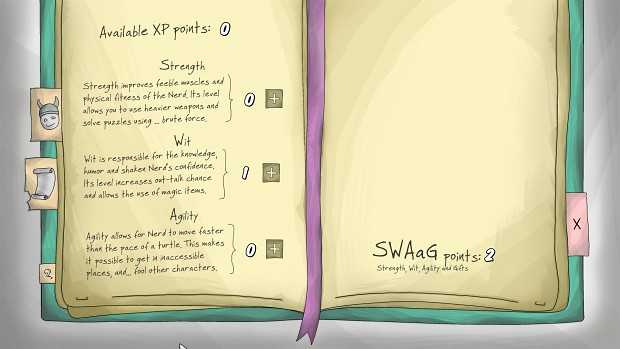 Available XP points: 0
Strength
Strength improves feeble muscles and
physical fitness of the Nerd. Its level
allows you to use heavier weapons and
solve puzzles using ... brute force.
0 +
Wit
Wit is responsible for the knowledge,
humor and shaken Nerd's confidence.
Its level increases out-talk chance
and allows the use of magic items.
1 +
Agility
Agility allows for Nerd to move faster
than the pace of a turtle. This makes
it possible to get in inaccessible
places, and... fool other characters.
0 +
X
SWAaG points: 2
Strength, Wit, Agility and Gifts